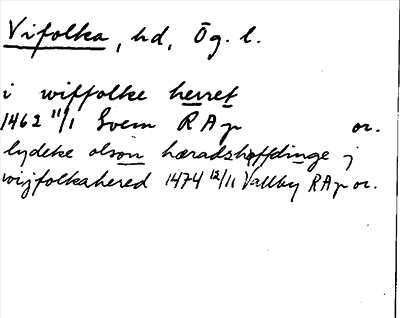 Vifolka, hd, Ög. l.
i wiffolke herret
1462 11/1 Svem RAp or.
lydeke olson hæradshøffdinge j
wijfolkahered 1474 12/11 Vallby RAp or.